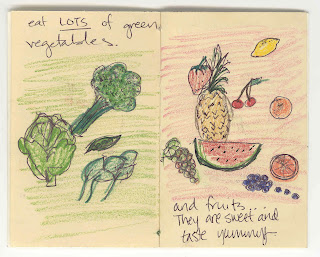 eat LOTS of green
vegetables.
and fruits....
They are sweet and
taste yummy